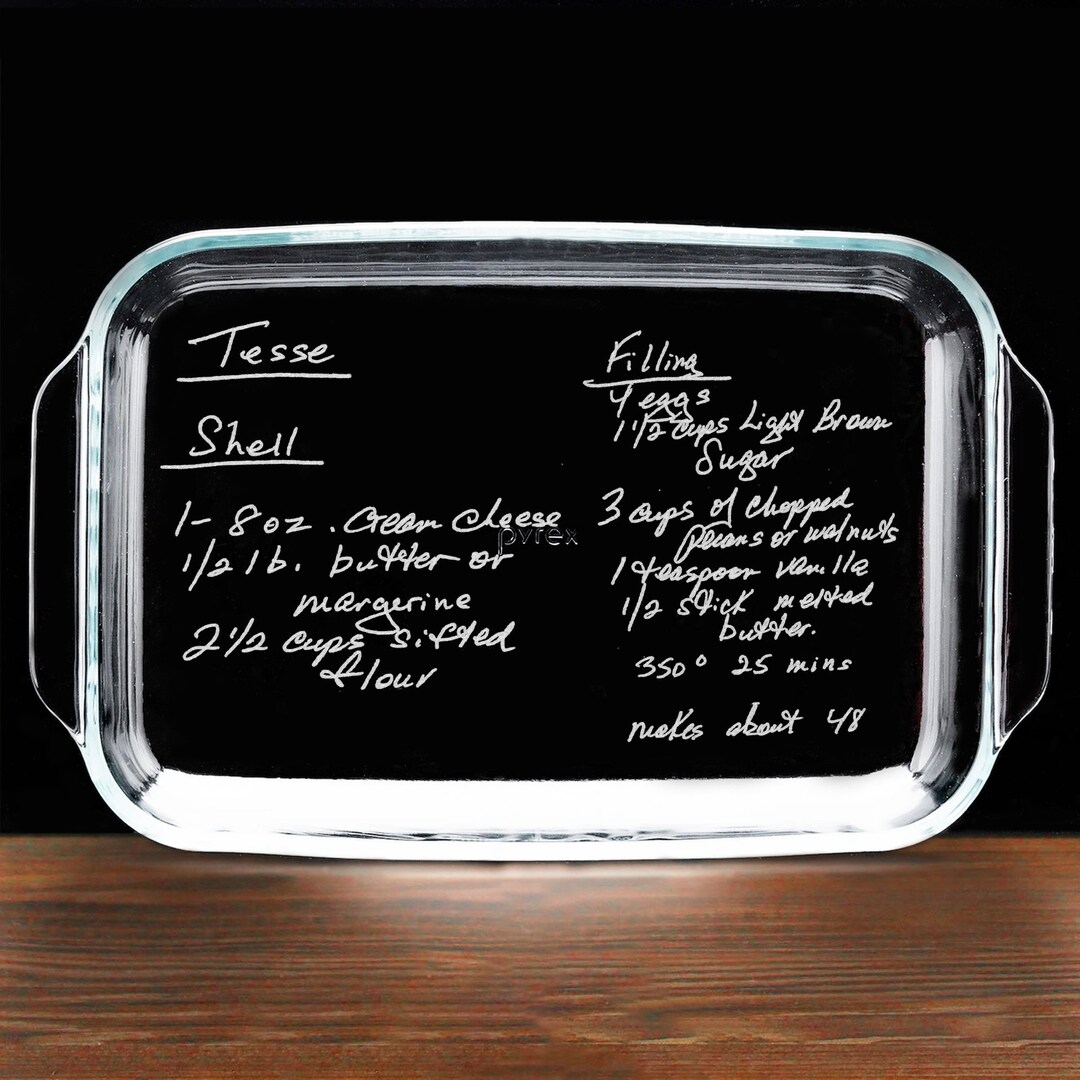 Tesse
Shell
1- 8 oz. Cream cheese
1/2 lb. butter or
margerine
2 1/2 cups sifted
flour
Filling
4 eggs
1 1/2 cups Light Brown
Sugar
3 cups of chopped
pecans or walnuts
1 teaspoon vanilla
1/2 stick melted
butter.
350° 25 mins
makes about 48
pyrex